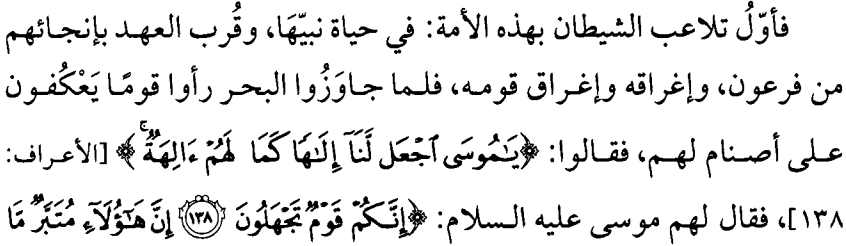 فأوّلُ تلاعب الشيطان بهذه الأمة: في حياة نبيّهَا، وقُرب العهد بإنجائهم
من فرعون، وإغراقه وإغراق قومه، فلما جاوَزُوا البحر رأوا قومًا يَعْكُفون
على أصنام لهم، فقالوا: ﴿يَٰمُوسَى ٱجْعَل لَّنَآ إِلَٰهًا كَمَا لَهُمْ ءَالِهَةٌۚ﴾ [الأعراف:
١٣٨]، فقال لهم موسى عليه السلام: ﴿إِنَّكُمْ قَوْمٌ تَجْهَلُونَ ١٣٨ إِنَّ هَٰٓؤُلَآءِ مُتَبَّرٌ مَّا